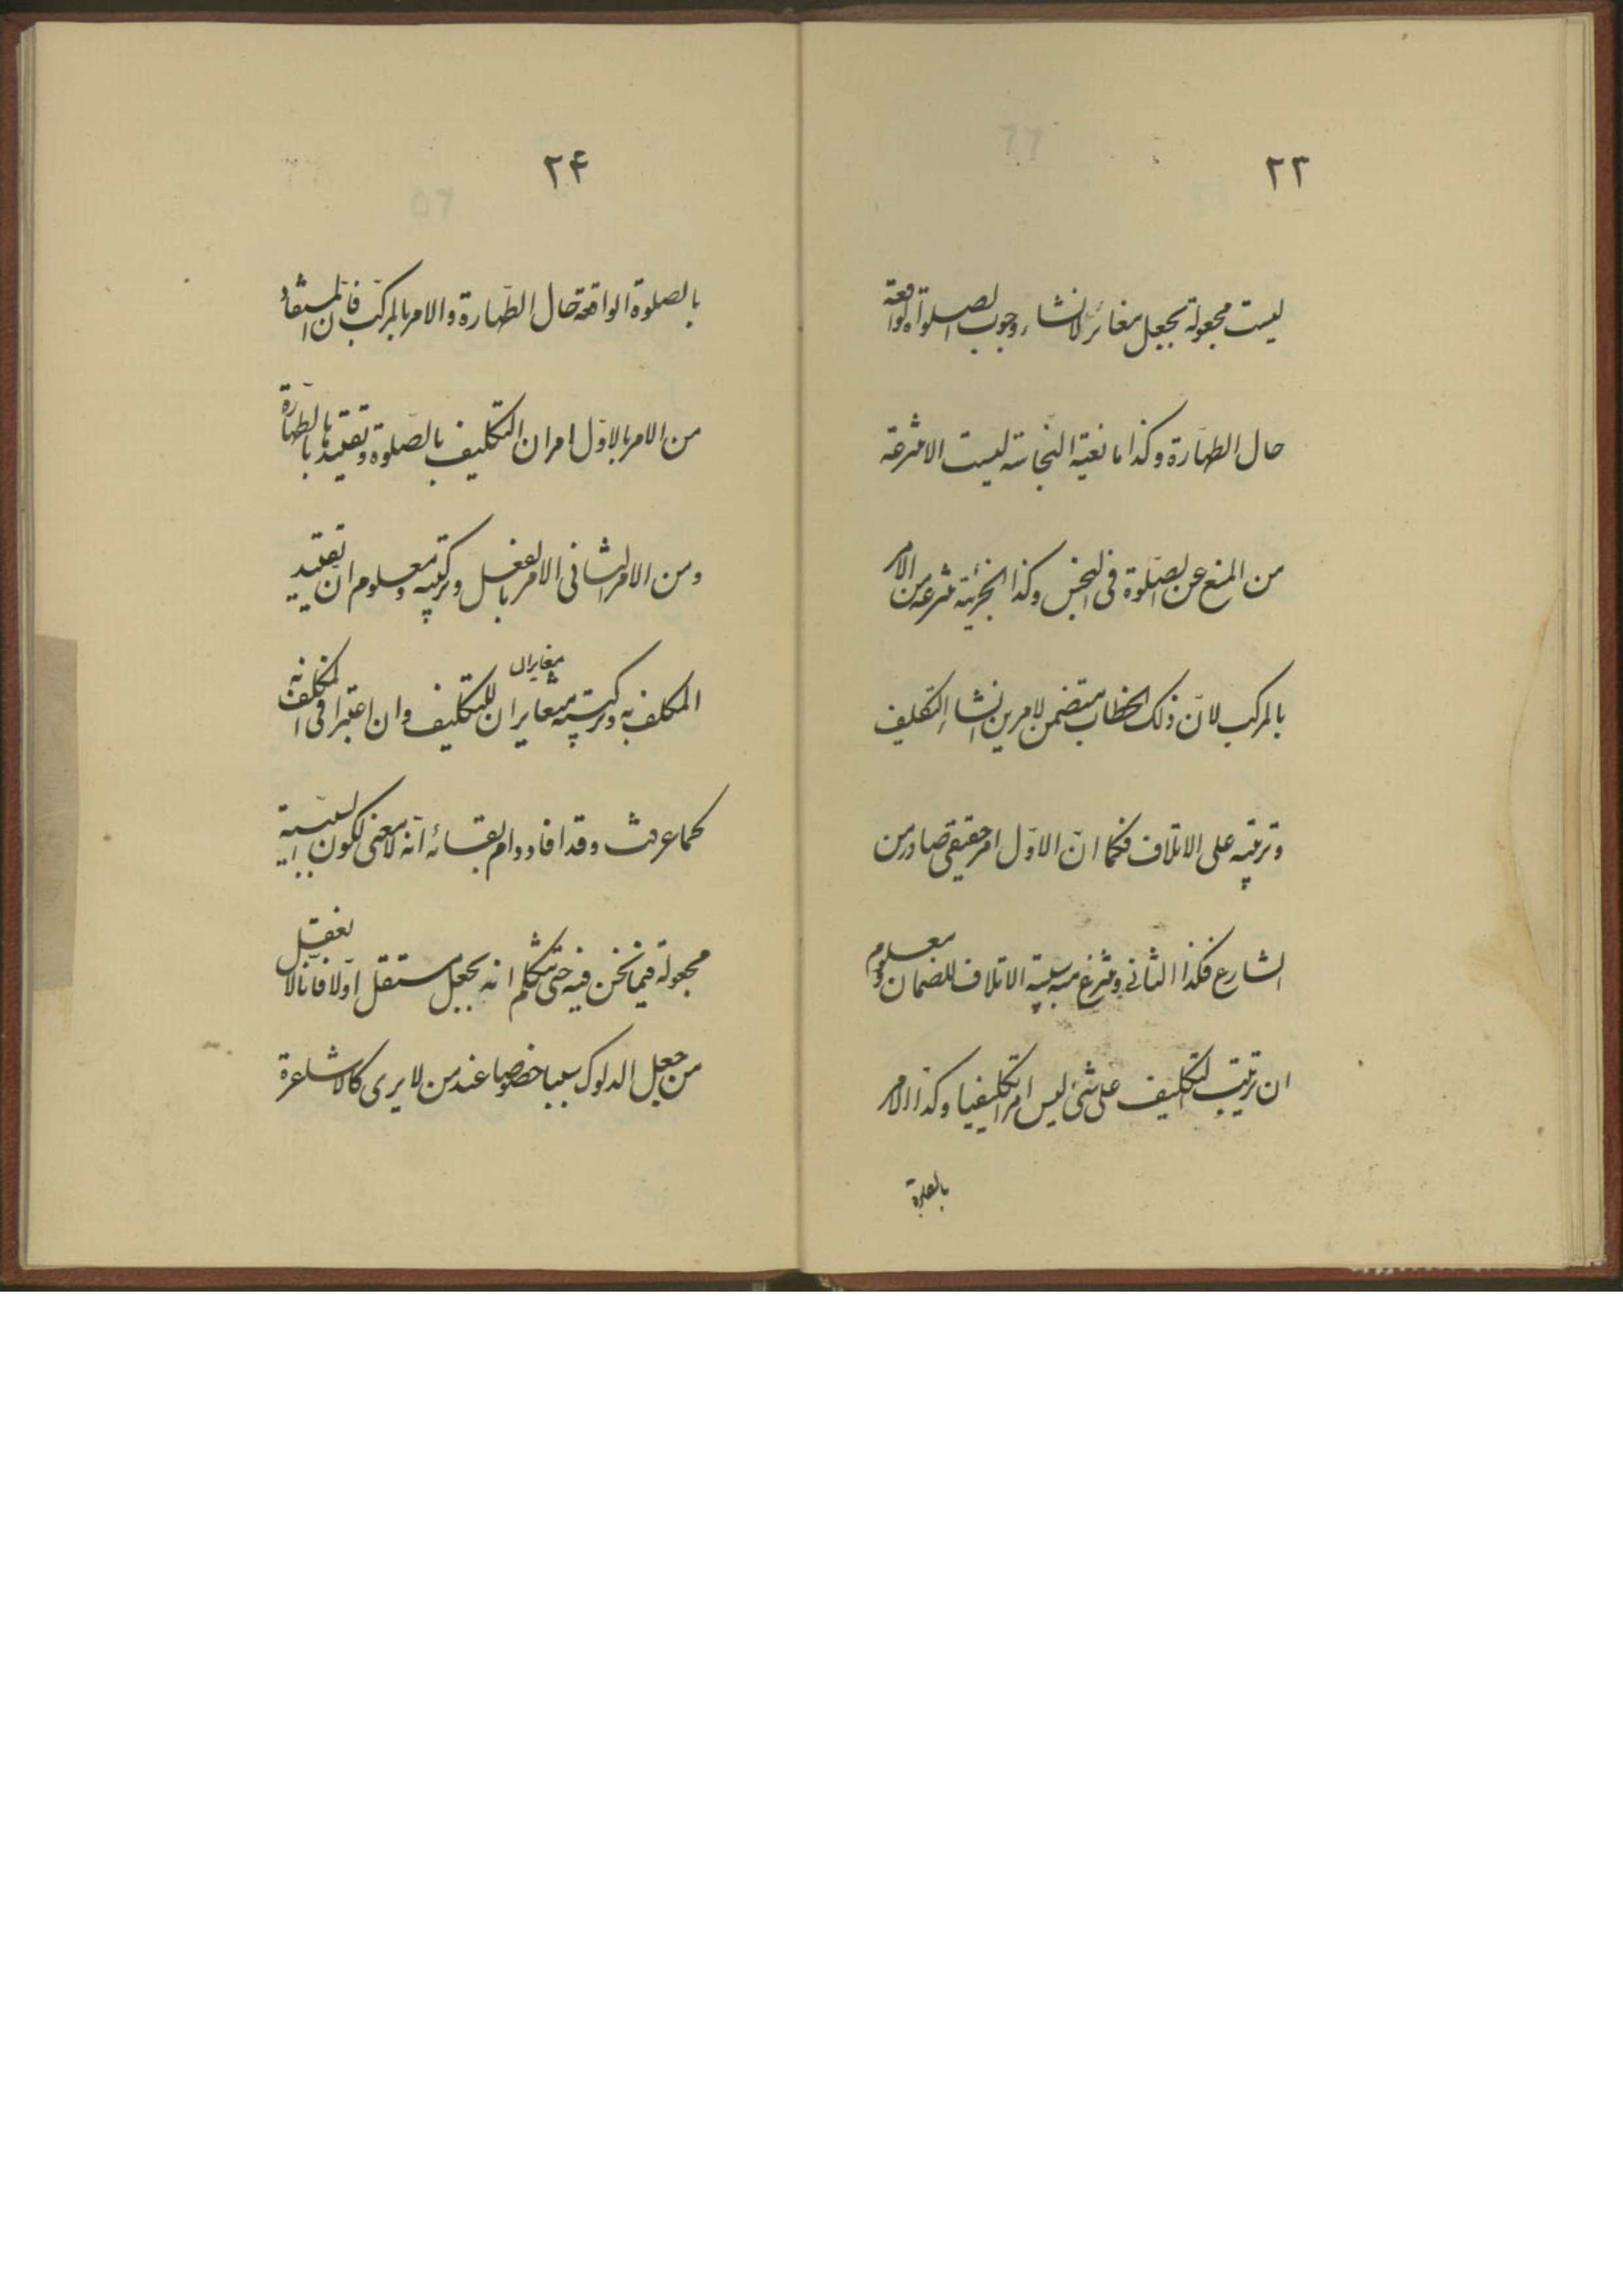 ٢٣
ليست مجعولة بجعل مغائر لانشاء وجوب الصلوة الواقعة
حال الطهارة وكذا مانعية النجاسة ليست الا منتزعة
من المنع عن الصلوة فى النجس وكذا الجزئية منتزعة من الامر
بالمركب لانّ ذلك الخطاب متضمن لامرين انشاء التكليف
وترتبه على الاتلاف فكما انّ الاوّل امر حقيقى صادر من
الشارع فكذا الثانى ومنتزع منه سببية الاتلاف للضمان ومعلوم
ان ترتيب التكليف على شئ ليس امرا تكليفيا وكذا الامر
بالصلوة
٢۴
بالصلوة الواقعة حال الطّهارة والامر بالمركّب فانّ المستفاد
من الامر بالاوّل امران التكليف بالصّلوة وتقييدها بالطهارة
ومن الامر الثانى الامر بالفعل وتركيبه ومعلوم انّ تقييد
المكلف به وتركيبه مغايران للتكليف وان اعتبرا فى المكلف به
مغايران
كما عرفت وقد افاد دام بقائه انّه لا معنى لكون السببيّة
مجعولة فيما نحن فيه حتى يتكلم انه بجعل مستقل اوّلا فانّا لا نعقل
من جعل الدلوك سببا خصوصا عند من لا يرى كالاشاعرة